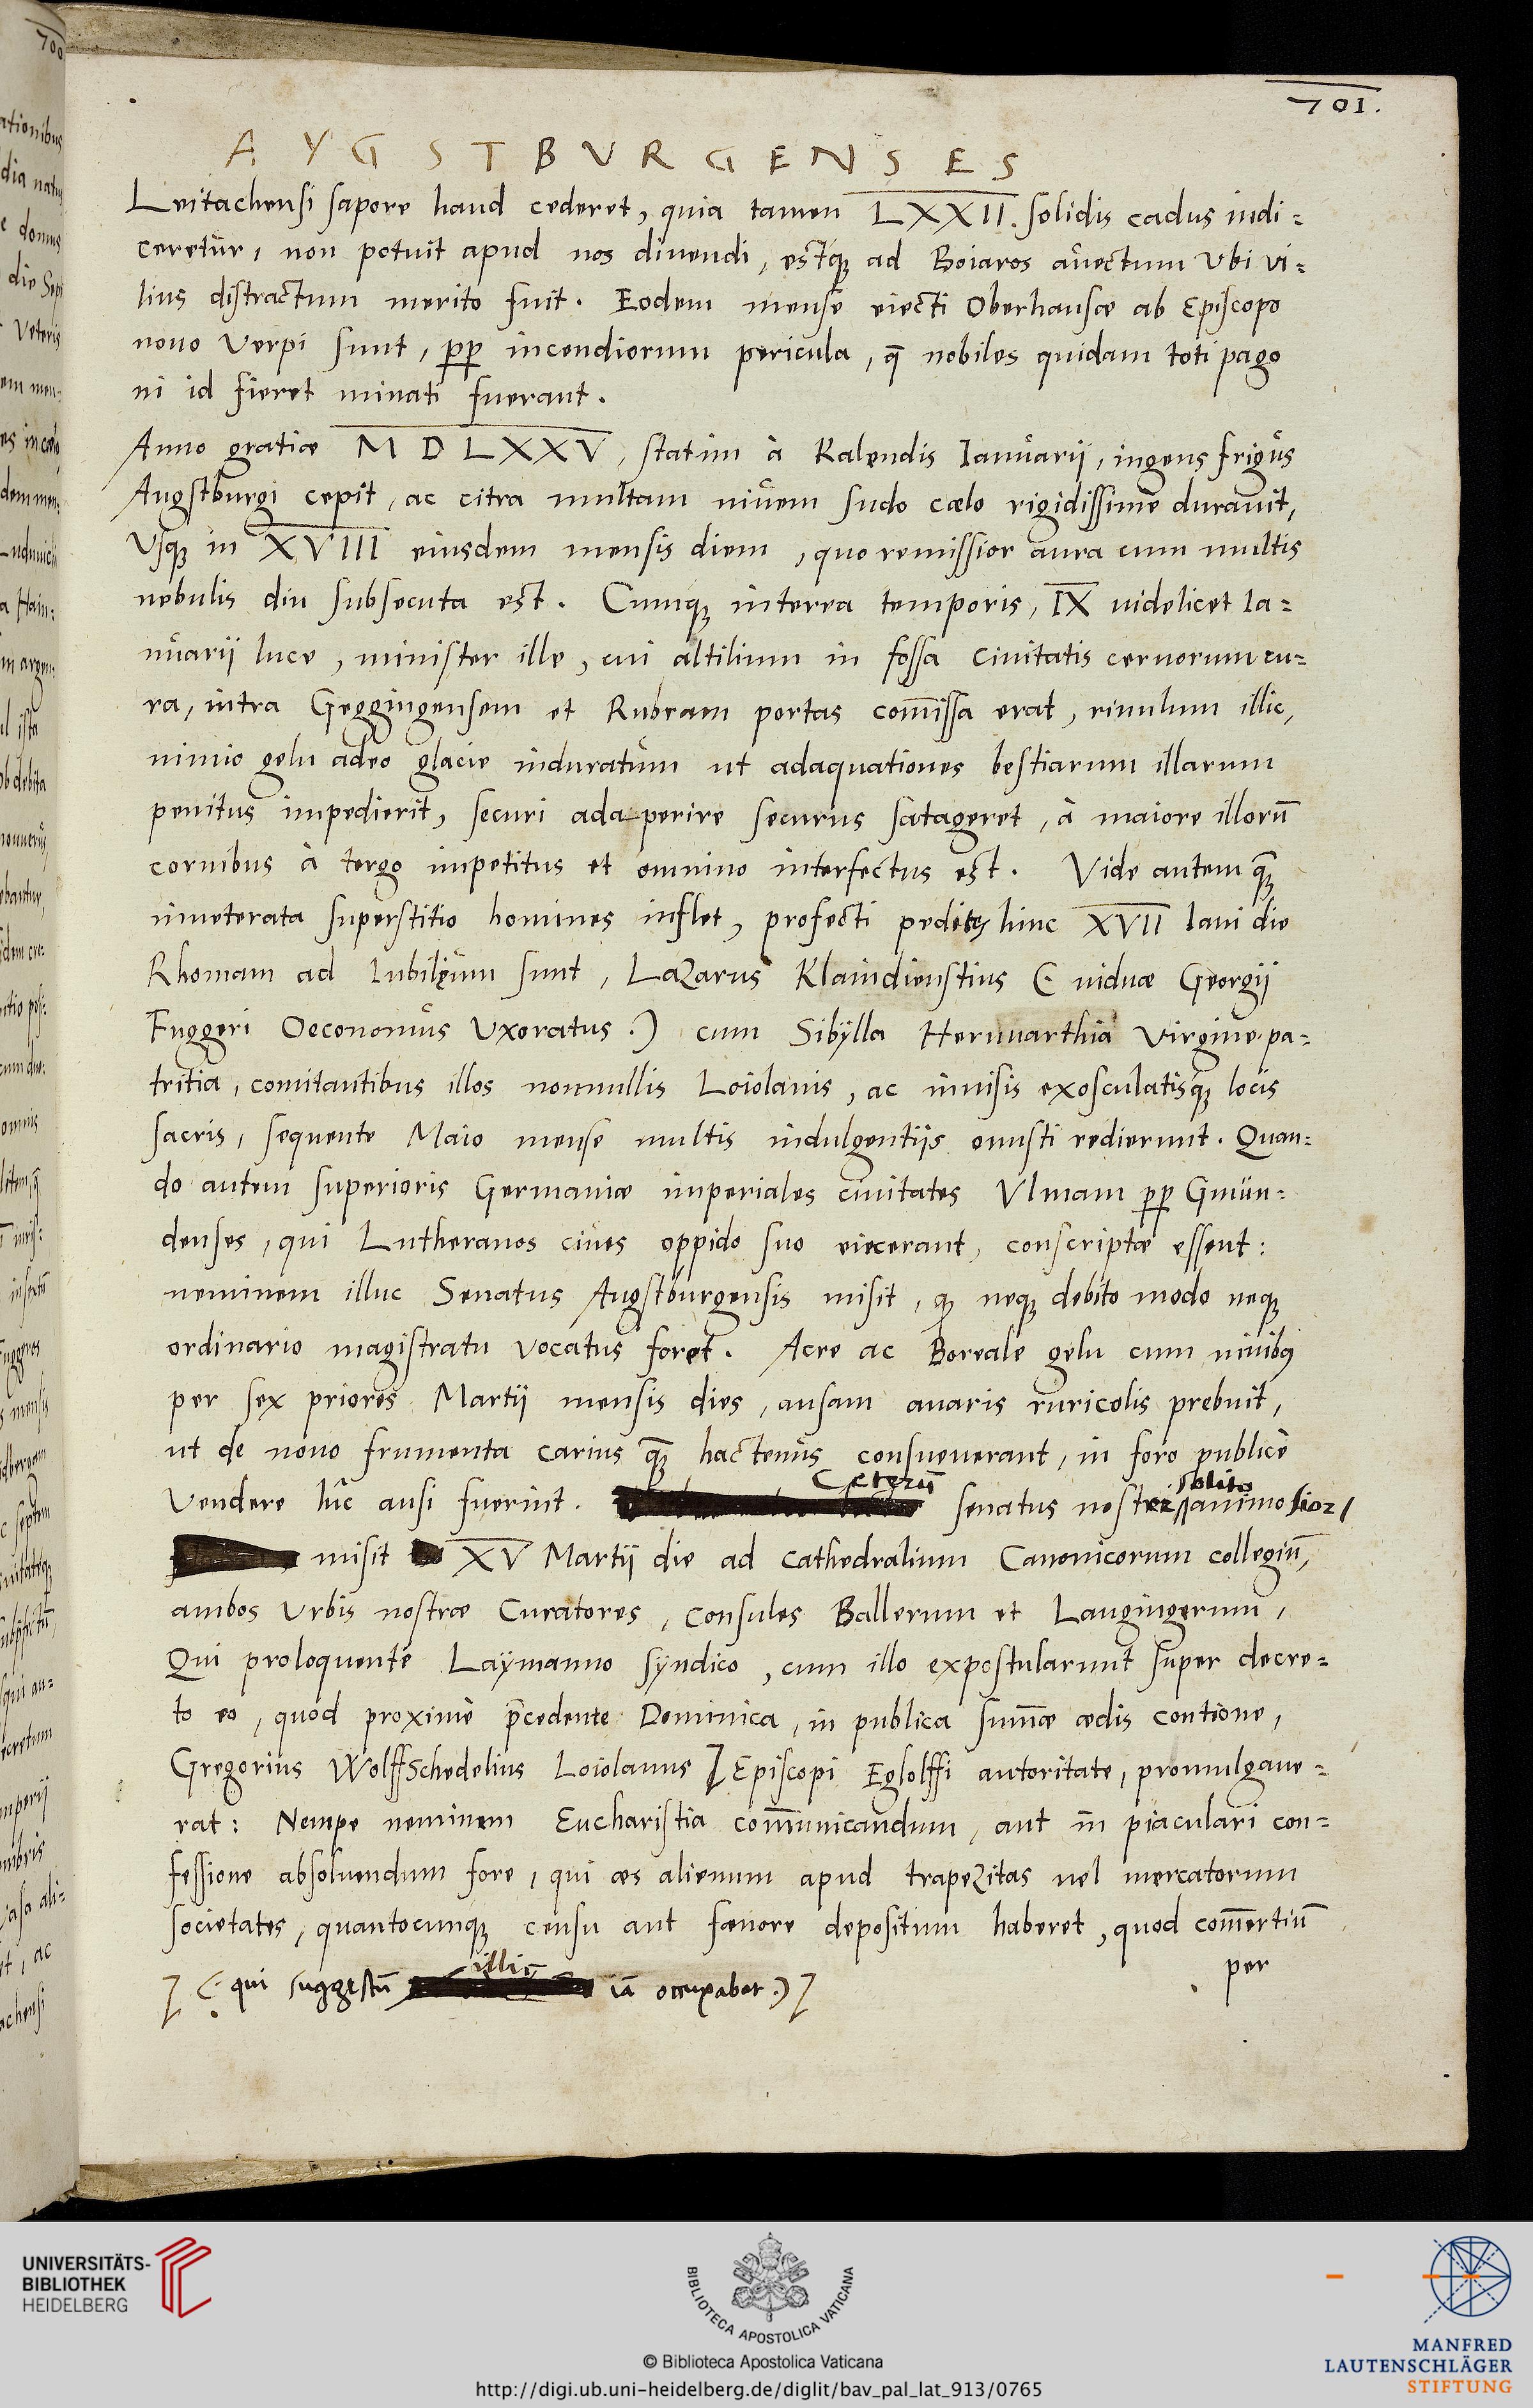 701.
AYGSTBVRGENSES
Leitachensi sapore haud cederet, quia tamen LXXII. solidis cadus indi=
ceretur, non potuit apud nos diuendi, estq; ad Boiaros auectum Vbi vi=
lius distractum merito fuit. Eodem mense eiecti Oberhansæ ab Episcopo
nouo Verpi sunt, pp incendiorum pericula, quę nobiles quidam toti pago
ni id fieret minati fuerant.
Anno gratiæ MDLXXV, statim à Kalendis Ianuarij, ingens frigus
Augstburgi cepit, ac citra multam niuem sudo cælo rigidissime durauit,
Vsq; in XVIII eiusdem mensis diem, quo remissior aura cum multis
nebulis diu subsecuta est. Cumq; interea temporis, IX uidelicet Ia=
nuarij luce, minister ille, cui altilium in fossa Ciuitatis ceruorum cu=
ra, intra Geggingensem et Rubram portas com̄issa erat, riuulum illic,
nimio gelu adeo glacie induratum ut adaquationes bestiarum illarum
penitus impedierit, securi adaperire securus satageret, à maiore illorū
cornibus à tergo impetitus et omnino interfectus est. Vide autem quā
inueterata superstitio homines inflet, profecti pedites hinc XVII Iani die
Rhomam ad Iubilęum sunt, Lazarus Klaindienstius (· uiduæ Georgij
Fuggeri Oeconomus Vxoratus ·) cum Sibylla Heruuarthia Virgine pa=
tritia, comitantibus illos nonnullis Loiolanis, ac inuisis exosculatisq; locis
sacris, sequente Maio mense multis indulgentijs onusti redierunt. Quan=
do autem superioris Germaniæ imperiales ciuitates Vlmam pp Gmün=
denses, qui Lutheranos ciues oppido suo eiecerant, conscriptæ essent:
neminem illuc Senatus Augstburgensis misit, qđ neq; debito modo neq;
ordinario magistratu vocatus foret. Acre ac Boreale gelu cum niuibq
per sex priores Martij mensis dies, ansam auaris ruricolis prebuit,
ut de nouo frumenta carius quā hactenus consueuerant, in foro publicè
Vendere hūc ausi fuerint. Ceterū senatus noster solito animosior
misit XV Martij die ad Cathedralium Canonicorum collegiū,
ambos Vrbis nostræ Curatores, Consules Ballerum et Laugingerum,
Qui proloquente Laymanno Syndico, cum illo expostularunt super decre=
to eo, quod proximè p̄cedente Dominica, in publica sum̄æ ædis contione,
Gregorius WolffSchedelius Loiolanus ] Episcopi Eglolffi autoritate, promulgaue=
rat: Nempe neminem Eucharistia com̄unicandum, aut in piaculari con=
fessione absoluendum fore, qui æs alienum apud trapezitas uel mercatorum
societates, quantocumq; censu aut fænore depositum haberet, quod com̄ertiū
per
] (· qui suggestū illic iā occupabat ·) ]
UNIVERSITÄTS-
BIBLIOTHEK
HEIDELBERG
BIBLIOTECA APOSTOLICA VATICANA
© Biblioteca Apostolica Vaticana
http://digi.ub.uni-heidelberg.de/diglit/bav_pal_lat_913/0765
MANFRED
LAUTENSCHLÄGER
STIFTUNG